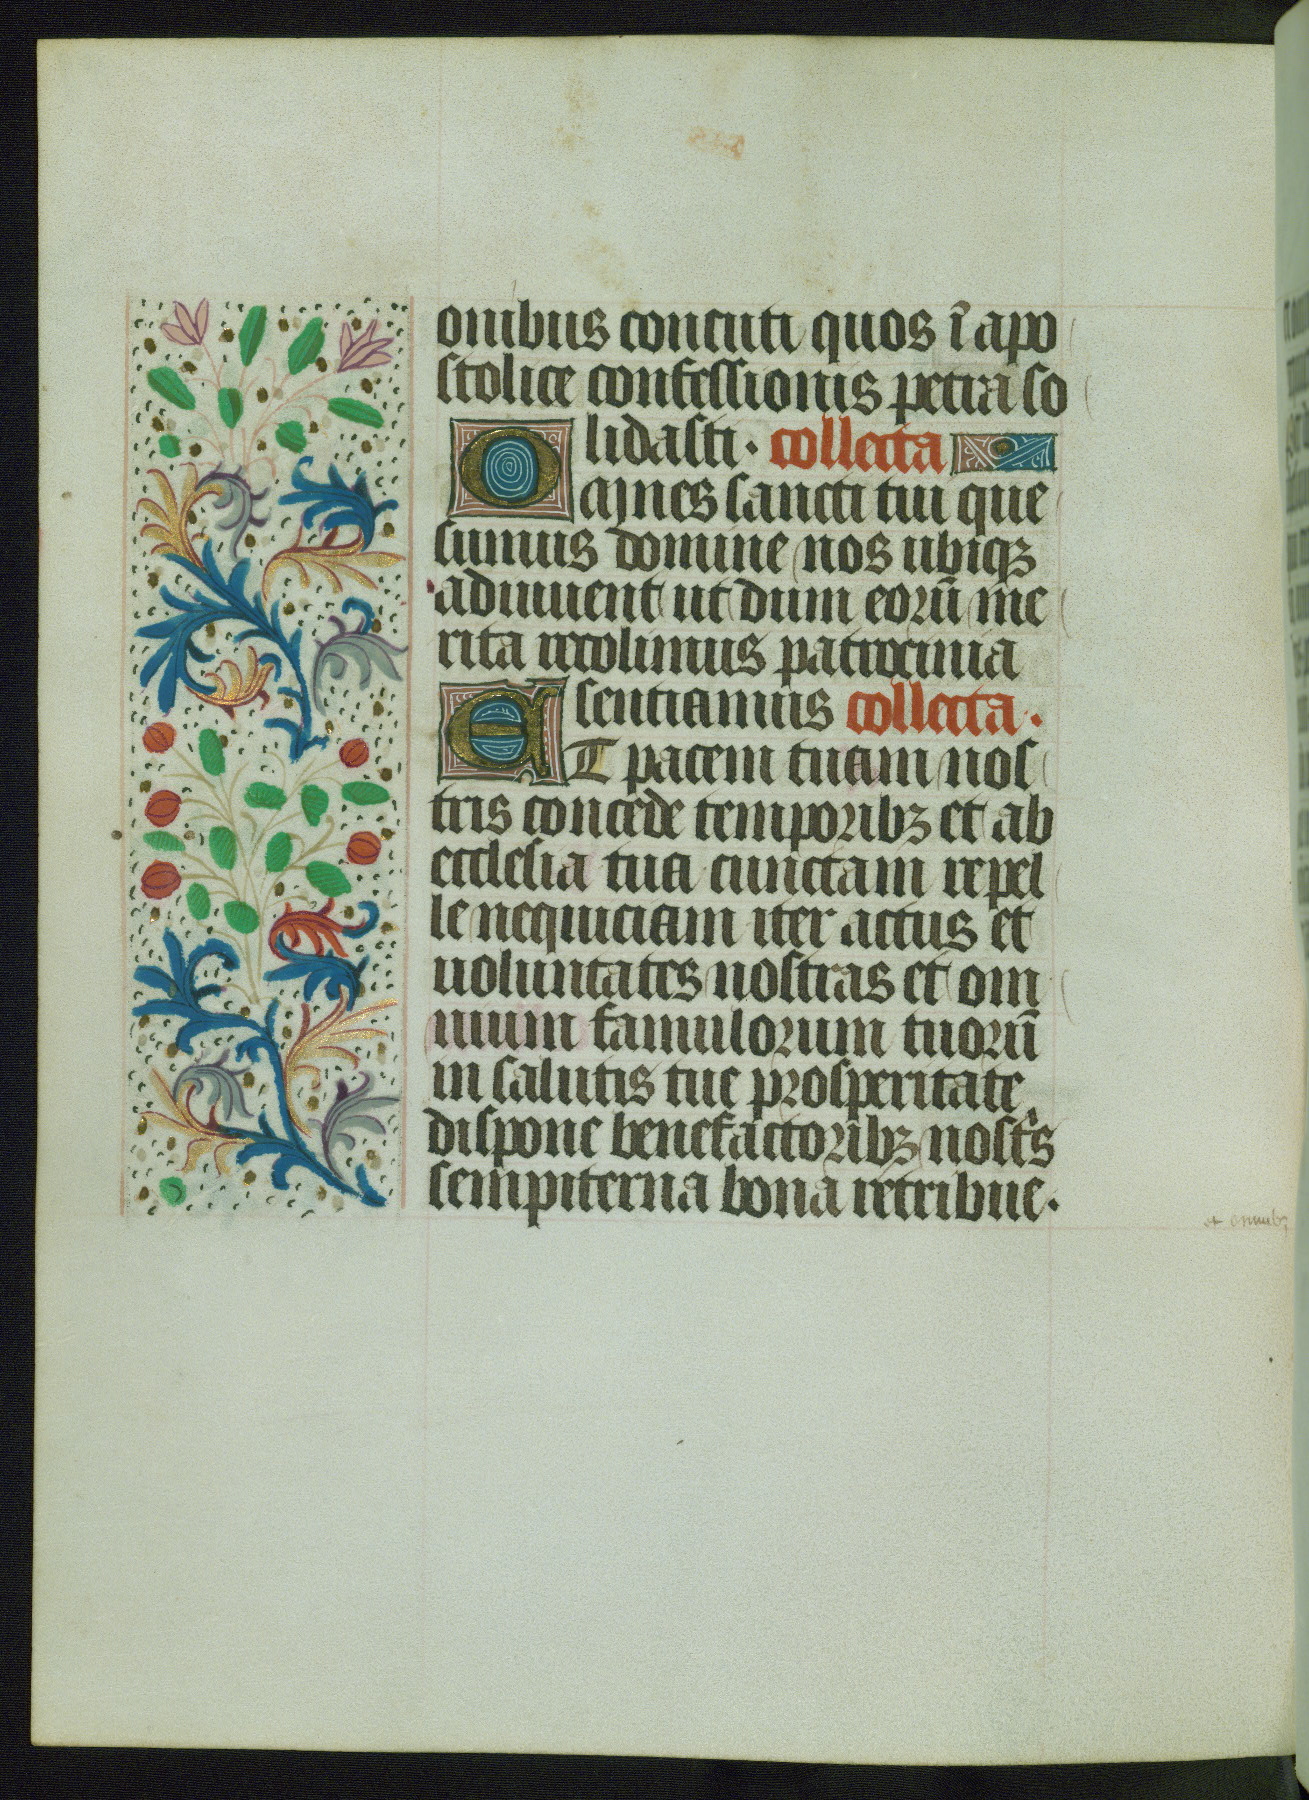 onibus concuti quos ī apo
stolice confessionis petra so
lidasti. collecta
Omnes sancti tui que
sumus domine nos ubiqꝫ
adiuuent ut dum eorū me
rita recolimus patrocinia
sentiamus collecta.
ET pacem tuam nos
tris concede temporibꝫ et ab
ecclesia tua cunctam repel
le nequiciam iter actus et
uoluntates nostras et om
nium famulorum tuorū
in salutis tue prosperitate
dispone benefactoribꝫ nostr̄s
sempiterna bona retribue.
et omnibꝫ